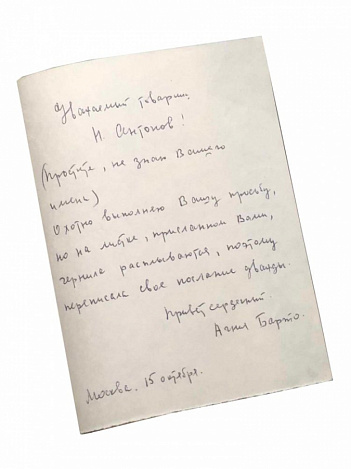 Уважаемый товарищ
И. Антонов!
(Простите, не знаю Вашего
имени)
Охотно выполняю Вашу просьбу,
но на листке, присланном Вами,
чернила расплываются, поэтому
переписала свое послание дважды.
Привет сердечный.
Агния Барто.
Москва, 15 октября.